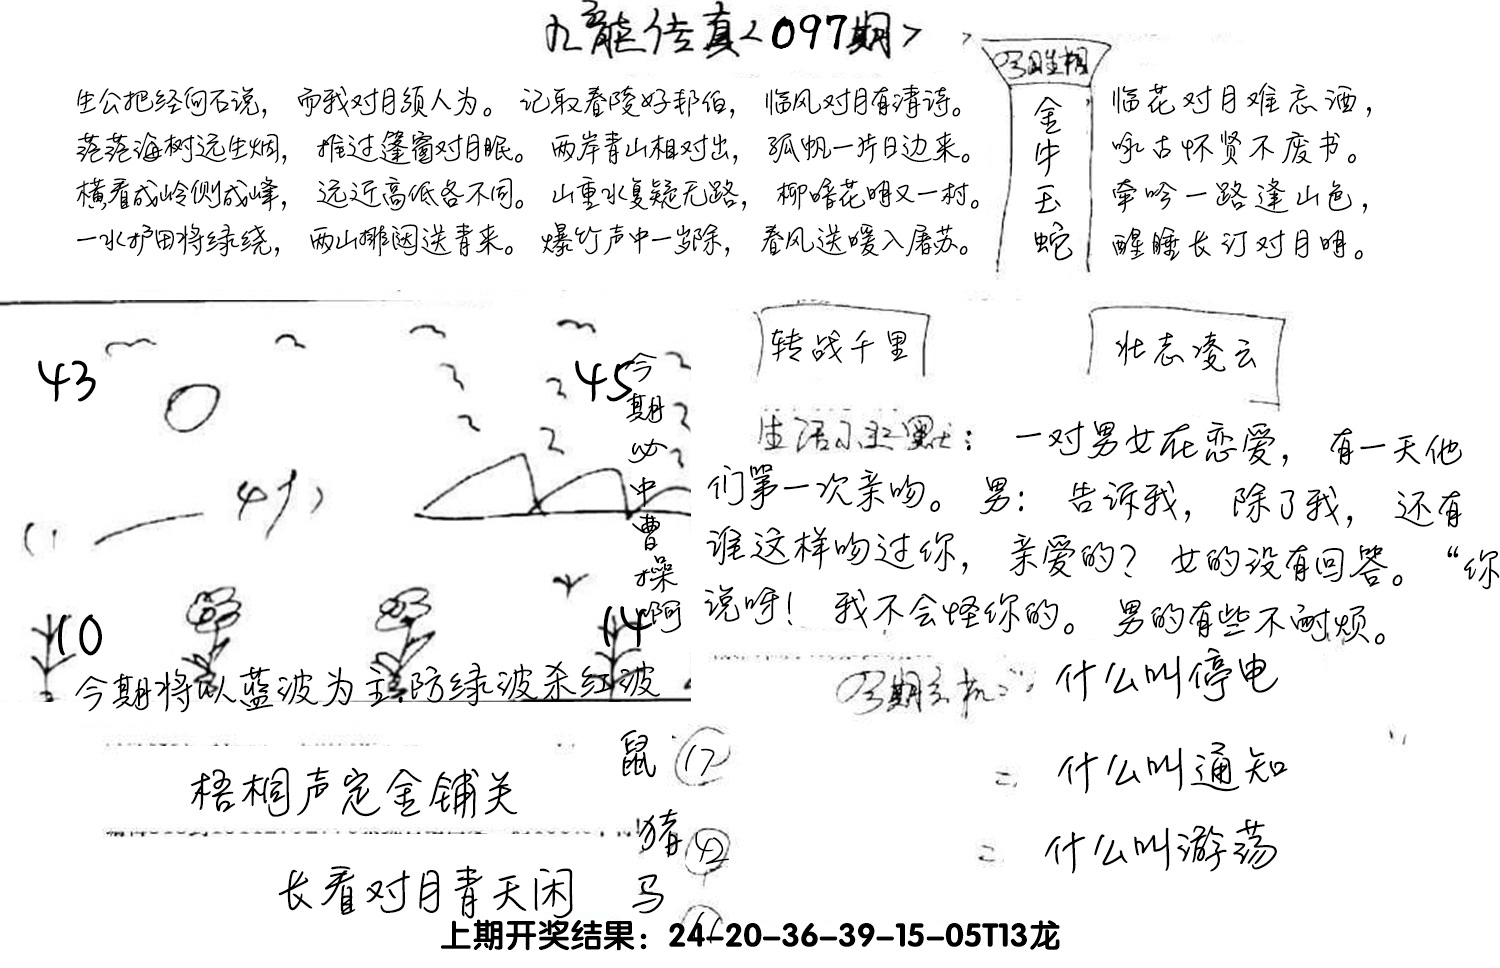 九龍传真<097期>
生公把经向石说，而我对月须人为。记取春陵好邦伯，临风对月有清诗。
茫茫海树远生烟，推过篷窗对月眠。两岸青山相对出，孤帆一片日边来。
横看成岭侧成峰，远近高低各不同。山重水复疑无路，柳暗花明又一村。
一水护田将绿绕，两山排闼送青来。爆竹声中一岁除，春风送暖入屠苏。
金牛玉蛇
临花对月难忘酒，
咏古怀贤不废书。
牵吟一路逢山色，
醒睡长汀对月明。
43
45
今期必中曹操啊
10
14
今期将以蓝波为主防绿波杀红波
转战千里
壮志凌云
生活幽默：一对男女在恋爱，有一天他
们第一次亲吻。男：告诉我，除了我，还有
谁这样吻过你，亲爱的？女的没有回答。“你
说呀！我不会怪你的。男的有些不耐烦。
什么叫停电
二 什么叫通知
二 什么叫游荡
梧桐声定金铺关
长看对月青天闲
鼠 17
猪 42
马
上期开奖结果：24-20-36-39-15-05T13龙